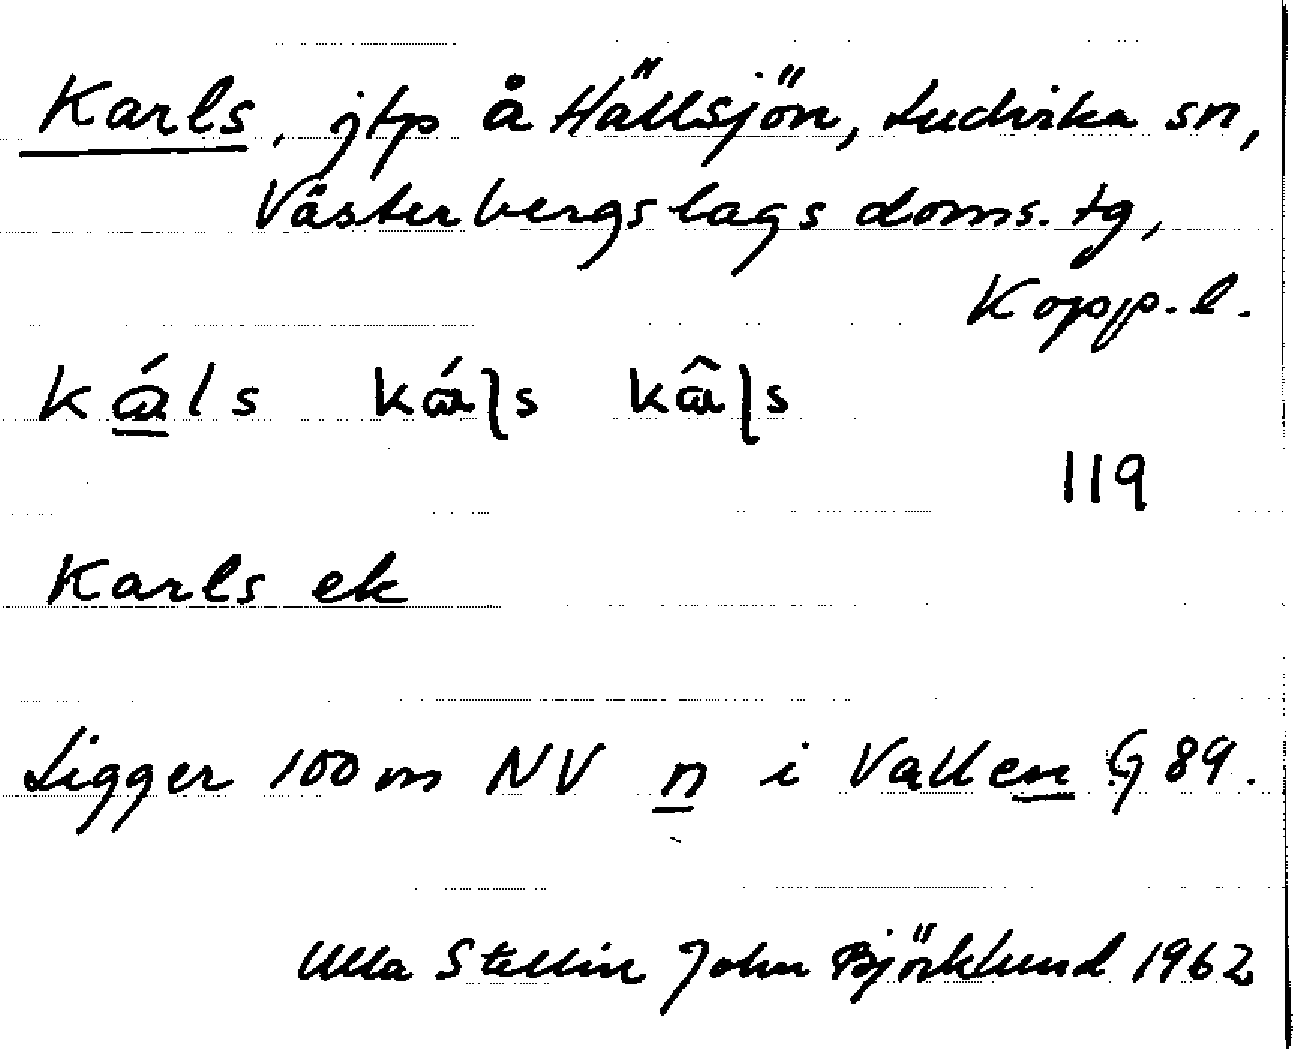 Karls, jtp å Hällsjön, Ludvika sn,
Västerbergslags doms. tg,
Kopp. l.
119
Karls ek
Ligger 100 m NV n i Vallen G 89.
Ulla Stellin John Björklund 1962